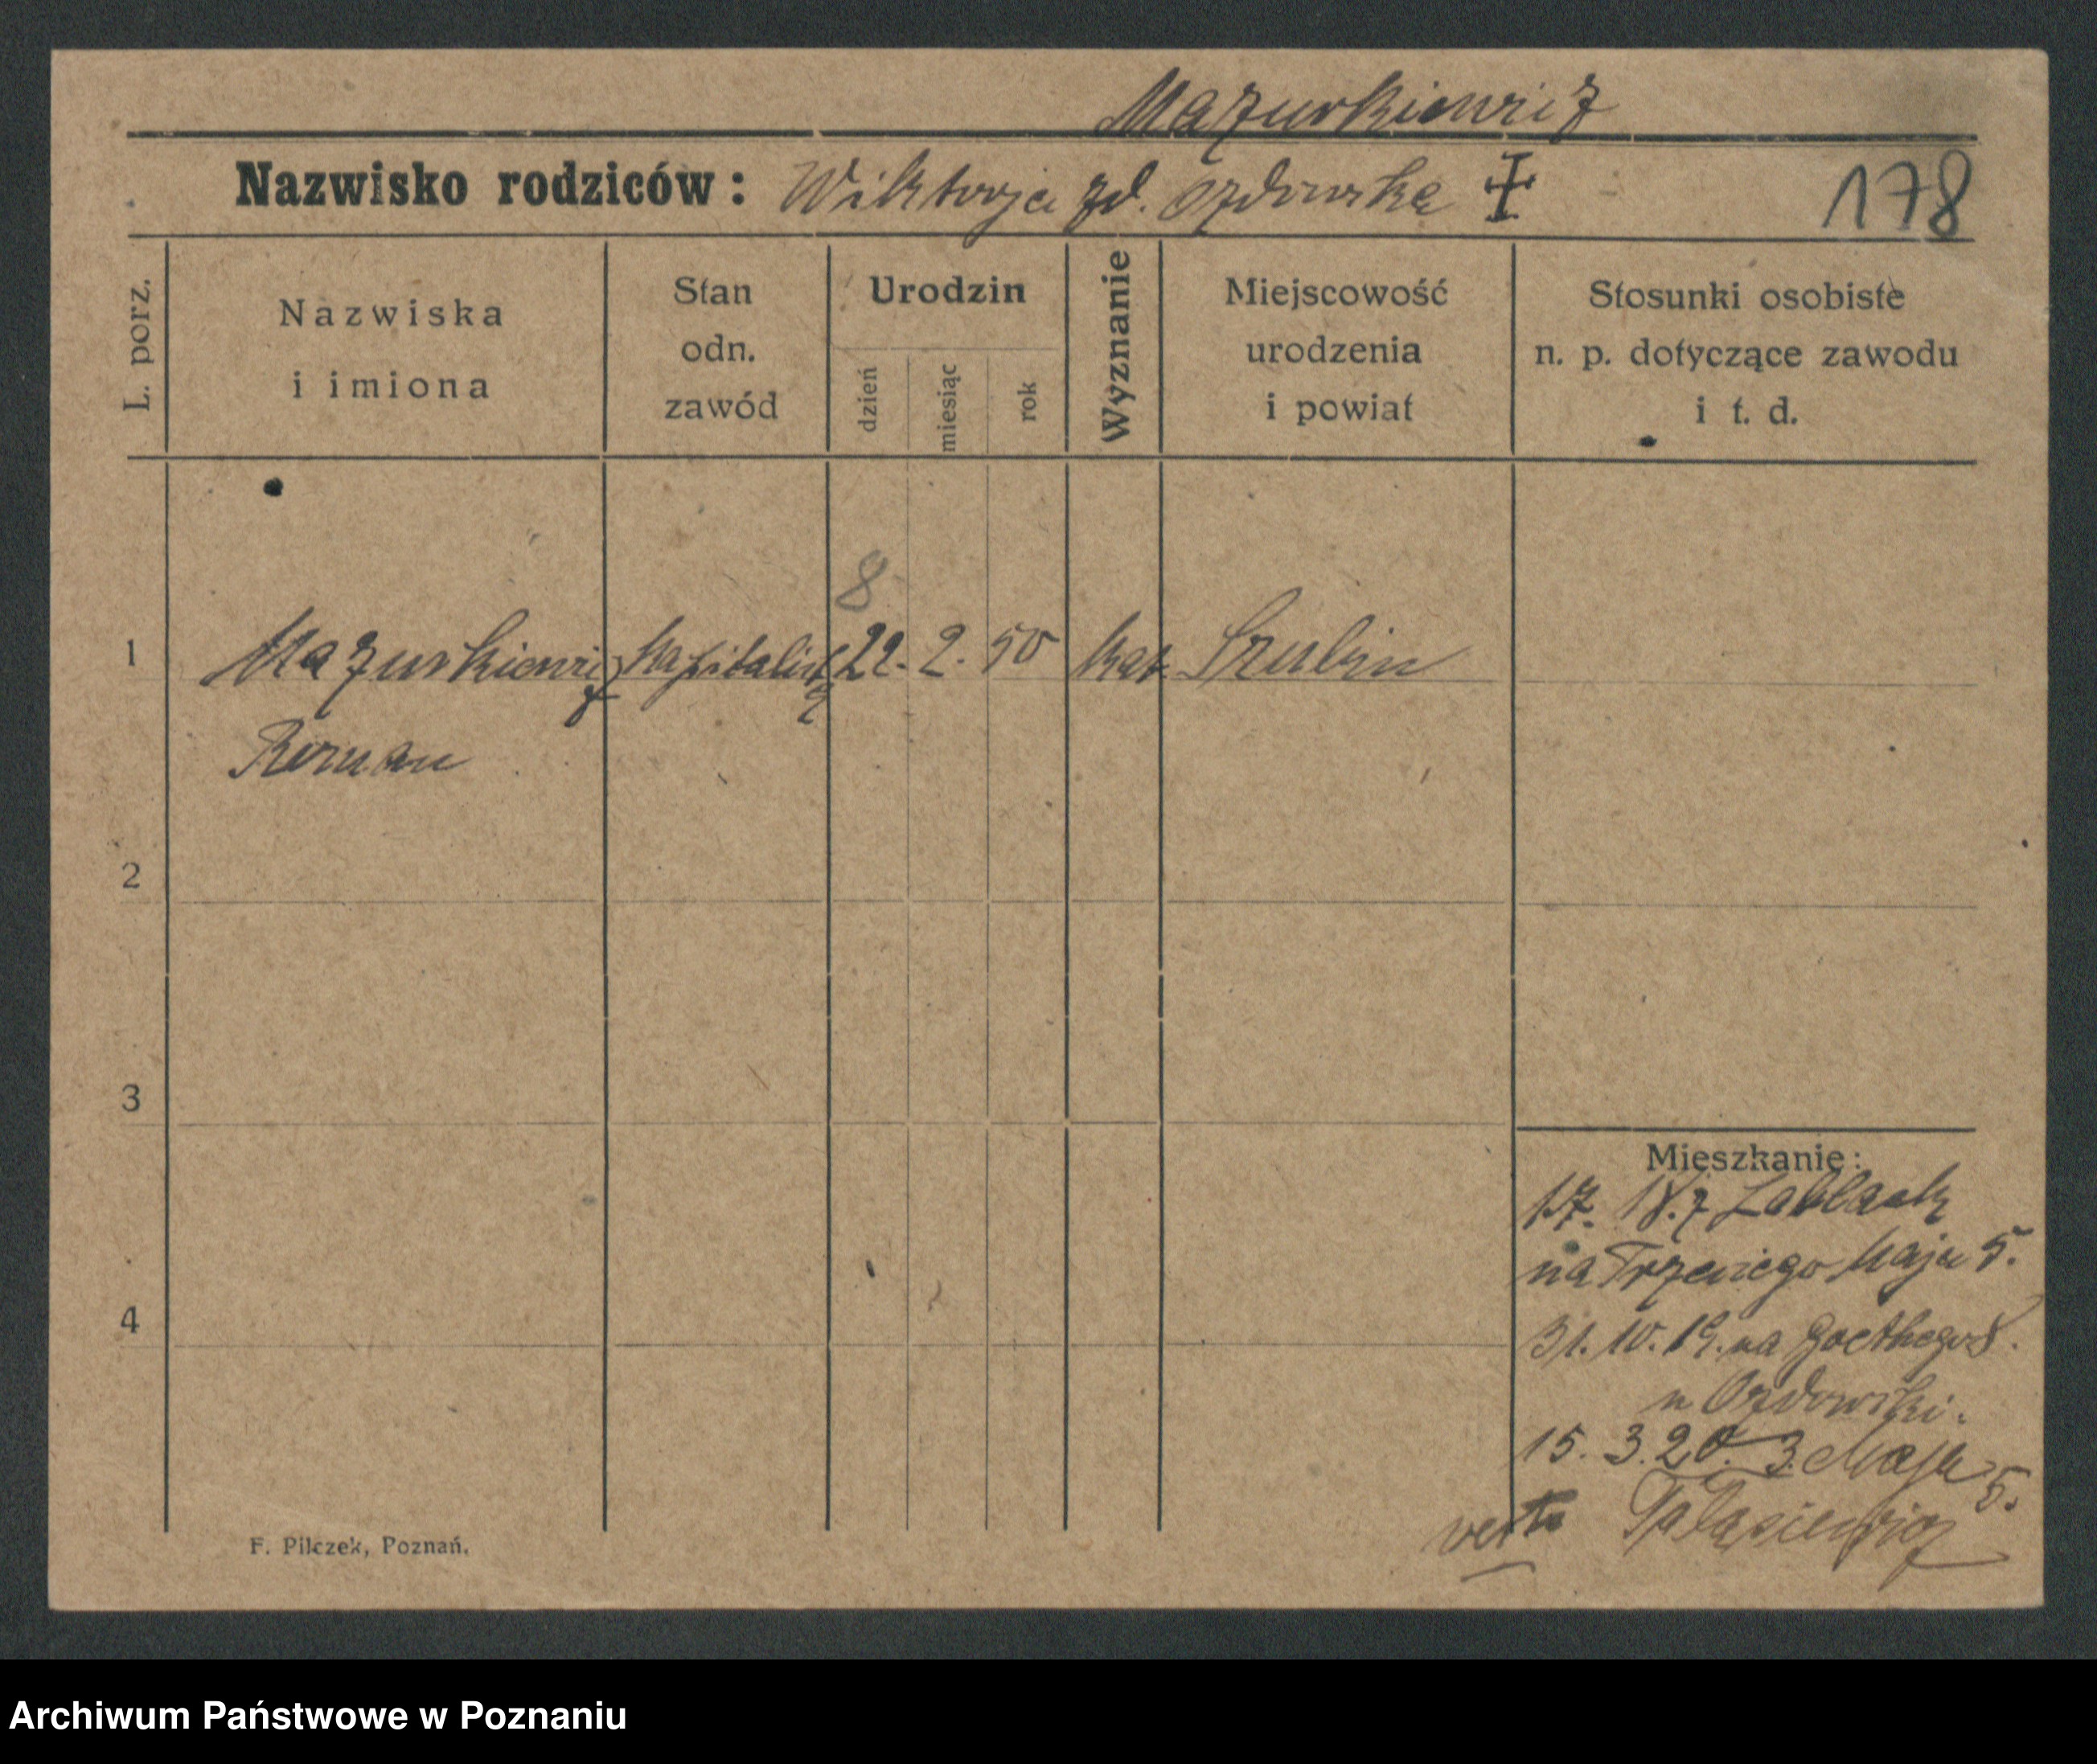 Mazurkiewicz
Nazwisko rodziców: Wiktorja zd. Ozdowska
178
L. porz.
Nazwiska i imiona
Stan odn. zawód
Urodzin
dzień
miesiąc
rok
Wyznanie
Miejscowość urodzenia i powiat
Stosunki osobiste n. p. dotyczące zawodu i t. d.
8
1 Mazurkiewicz kapitalista 22. 2. 50 kat. Szubin
Roman
2
3
Mieszkanie:
17. 18.7
na Trzeciego Maja 5.
4
31. 10. 19. na Goethego 8.
u Ozdowski.
15. 3. 20. 3. Maja 5.
F. Pilczek, Poznań.
Archiwum Państwowe w Poznaniu